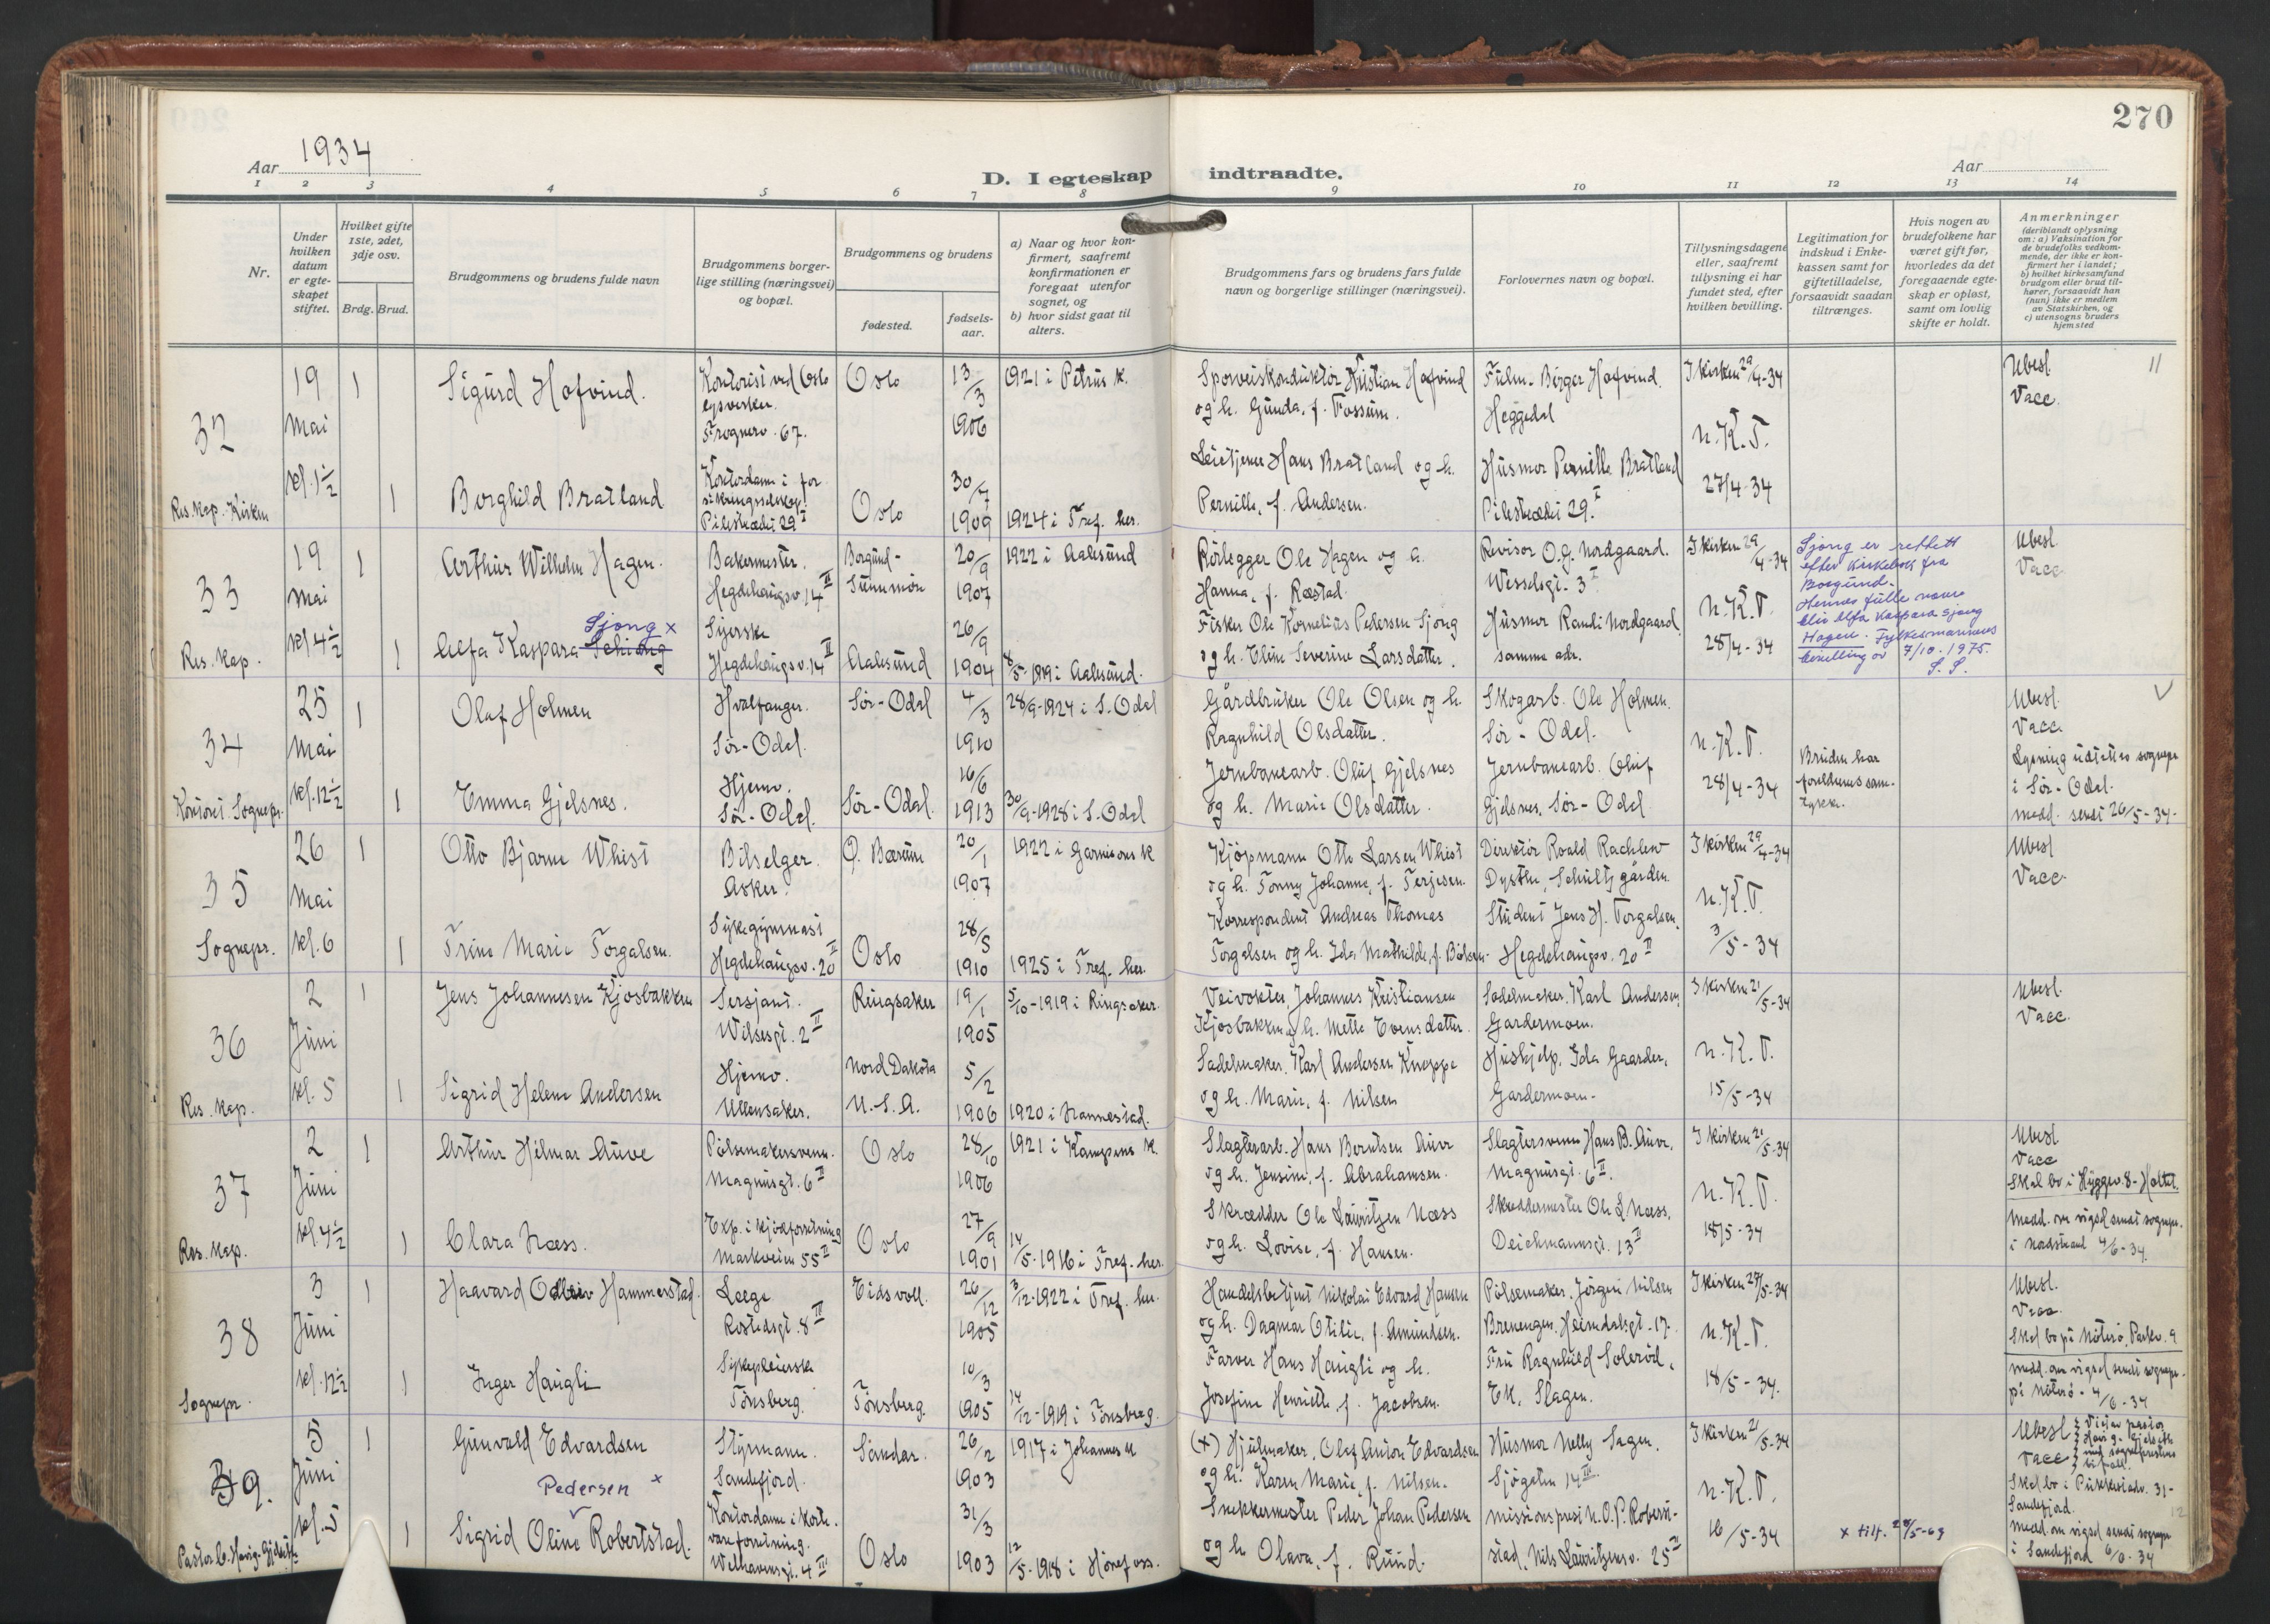 270
Aar 1934
Aar
D. I egteskap indtraadte.
1 2 3 4 5 6 7 8 9 10 11 12 13 14
Nr.
Under hvilken datum er egteskapet stiftet.
Hvilket gifte 1ste, 2det, 3dje osv.
Brdg. Brud.
Brudgommens og brudens fulde navn
Brudgommens borgerlige stilling (næringsvei) og bopæl.
Brudgommens og brudens
fødested.
fødselsaar.
a) Naar og hvor konfirmert, saafremt konfirmationen er foregaat utenfor sognet, og
b) hvor sidst gaat til alters.
Brudgommens fars og brudens fars fulde navn og borgerlige stillinger (næringsvei).
Forlovernes navn og bopæl.
Tillysningsdagene eller, saafremt tillysning ei har fundet sted, efter hvilken bevilling.
Legitimation for indskud i Enkekassen samt for giftetilladelse, forsaavidt saadan tiltrænges.
Hvis nogen av brudefolkene har været gift før, hvorledes da det foregaaende egteskap er opløst, samt om lovlig skifte er holdt.
Anmerkninger
(deriblandt oplysning om: a) Vaksination for de brudefolks vedkommende, der ikke er konfirmert her i landet;
b) hvilket kirkesamfund brudgom eller brud tilhører, forsaavidt han (hun) ikke er medlem av Statskirken, og
c) utensogns bruders hjemsted
32
Res. kap. Kirken
19 Mai kl. 1½
1
Sigurd Hofvind.
Kontorist ved Oslo lysverker.
Frognerv. 67.
Oslo
13/3 1906
1921 i Petrus K.
Sporveiskonduktör Kristian Hofvind
og h. Gunda, f. Fossum.
Fulm. Birger Hofvind.
Heggedal
I kirken 29/4-34
Ubesl
Vacc.
11
1
Borghild Bratland
Kontordame i forsikringsselskap.
Pilestrædet 29 I
Oslo
30/7 1909
1924 i Tref. her.
Hans Bratland og h.
Pernille, f. Andersen.
Husmor Pernille Bratland
Pilestrædet 29. I
N.K.T.
27/4-34
33
Res. kap.
19 Mai kl 4½
1
Arthur Wilhelm Hagen.
Bakermester.
Hegdehaugsv. 14 II
Borgund-
Sunnmöre
20/9 1907
1922 i Aalesund
Rörlegger Ole Hagen og h.
Hanna, f. Ræstad.
Revisor O.G. Nordgaard.
Wesselsgt. 3 I
I kirken 29/4-34
Sjong er rettett
efter Kirkebok fra
Borgund.
Hennes fulle navn
blir Alfa Kaspara Sjong
Hagen. Fylkesmannens
bevilling av 7/10.1975.
S.S.
Ubesl
Vacc
1
Alfa Kaspara Schiong
Sjong x
Syerske
Hegdehaugsv. 14 II
Aalesund
26/9 1904
8/5-1919 i Aalesund.
Fisker Ole Kornelius Pedersen Sjong
og h. Eline Severine Larsdatter.
Husmor Randi Nordgaard
samme adr.
N.K.T.
28/4-34
34
Kontoret Sognepr.
25 Mai kl. 12½
1
Olaf Holmen
Hvalfanger.
Sör-Odal.
Sör-Odal
4/3 1910
28/9-1924 i S. Odal
Gårdbruker Ole Olsen og h.
Ragnhild Olsdatter.
Skogarb. Ole Holmen.
Sör-Odal.
N.K.T.
28/4-34
Bruden har
foreldrenes samtykke.
Ubesl.
Vacc.
Lysning utstedt av sognepr
i Sör-Odal.
medd. sendt 26/5-34.
1
Emma Gjelsnes.
Hjemv.
Sör-Odal.
Sör-Odal.
16/6 1913
30/9-1928 i S. Odal
Jernbanearb. Oluf Gjelsnes
og h. Marie Olsdatter.
Jernbanearb. Oluf
Gjelsnes, Sör-Odal
35
Sognepr.
26 Mai kl. 6
1
Otto Bjarne Whist
Bilselger.
Asker.
Ö. Bærum
20/1 1907
1922 i Garnisons K
Kjöpmann Otto Larsen Whist
og h. Tonny Johanne, f. Terjesen.
Direktör Roald Rachlew
Dysthe, Schultzgården.
I kirken 29/4-34
Ubesl
Vacc.
1
Trine Marie Torgalsen.
Sykegymnast
Hegdehaugsv. 20 II
Oslo
28/5 1910
1925 i Tref. her.
Korrespondent Andreas Thomas
Torgalsen og h. Ida Mathilde, f. Bölsen.
Student Jens H. Torgalsen,
Hegdehaugsv. 20 II
N.K.T.
3/5-34
36
Res. kap.
2 Juni kl. 5
1
Jens Johannesen Kjosbakken
Sersjant.
Wilsesgt. 2 II
Ringsaker
19/1 1905
5/10-1919 i Ringsaker.
Veivokter, Johannes Kristiansen
Kjosbakken og h. Mette Evensdatter.
Sadelmaker. Karl Andersen,
Gardermoen.
I kirken 21/5-34
Ubesl.
Vacc.
1
Sigrid Helene Andersen
Hjemv.
Ullensaker.
Nord Dakota
U.S.A.
5/2 1906
1920 i Hannestad.
Sadelmaker. Karl Andersen Knoppe
og h. Marie, f. Nilsen
Hushjelp. Ida Gaarder,
Gardermoen.
N.K.T.
15/5-34
37
Res. kap.
2 Juni kl. 4½
1
Arthur Hilmar Auve
Pölsemakersvenn.
Magnusgt. 6 II
Oslo
28/10 1906
1921 i Kampens K.
Slagterarb. Hans Berntsen Auve
og h. Jensine, f. Abrahamsen.
Slagtersvenn Hans B. Auve,
Magnusgt. 6 II
I kirken 21/5-34
Ubesl
Vacc
Skal bo i Hyggev. 8- Holtet.
Medd. om vigsel sendt sognepr.
i Nordstrand 4/6-34.
1
Clara Næss.
Exp. i kjolforretning
Markveien 55 II
Oslo
27/9 1901
14/5-1916 i Tref. her.
Skrædder Ole Lauritzen Næss
og h. Lovise, f. Hansen.
Skreddermester Ole L Næss,
Deichmannsgt. 13 II
N.K.T.
18/5-34
38
Sognepr.
3 Juni kl. 12½
1
Haavard Odleiv Hammerstad.
Læge
Rostedsgt. 8 III
Eidsvoll.
26/12 1905
3/12-1922 i Tref. her.
Handelsbetjent Nikolai Edvard Hansen
og h. Dagmar Otilie, f. Amundsen.
Pölsemaker. Jörgen Nilsen
Brenengen. Heimdalsgt. 17.
I kirken 27/5-34
Ubesl.
Vacc.
Skal bo på Nöterö, Parkv. 9
medd. om vigsel sendt sognepr.
på Nöterö. 4/6-34
1
Inger Haugli
Sykepleierske
Tönsberg.
Tönsberg.
10/3 1905
14/12-1919 i Tönsberg.
Farver Hans Haugli og h.
Josefine Henriette, f. Jacobsen.
Fru Ragnhild Solerød,
Ek, Slagen.
N.K.T.
18/5-34.
39.
Pastor C. Hovig-Gjelseth.
5 Juni kl. 5
1
Gunvald Edvardsen
Styrmann.
Sandefjord.
Sandar.
26/2 1903
1917 i Johannes K
(+) Hjulmaker. Olaf Anton Edvardsen
og h. Karen Marie, f. Nilsen.
Husmor Nelly Sagen.
Sjögaten 14 III.
I kirken 21/5-34
Ubesl
Vacc
Viet av pastor
med sogneprestens
Skal bo i 31-
Sandefjord.
medd om vigsel sendt sognepr
i Sandefjord 6/6-34
12
1
Pedersen x
Sigrid Oline Robertstad.
Kontordame i kortevareforretning.
Welhavensgt. 4 III
Oslo
31/3 1903
12/5-1918 i Hönefoss.
Snekkermester Peder Johan Pedersen
og h Olava, f. Ruud.
missionsprest N.O.P. Robertstad, Nils Lauritzensv. 25 II
N.K.T.
16/5-34
x tilf. 28/5-69